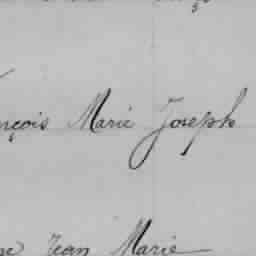 nçois Marie Joseph
Jean Marie